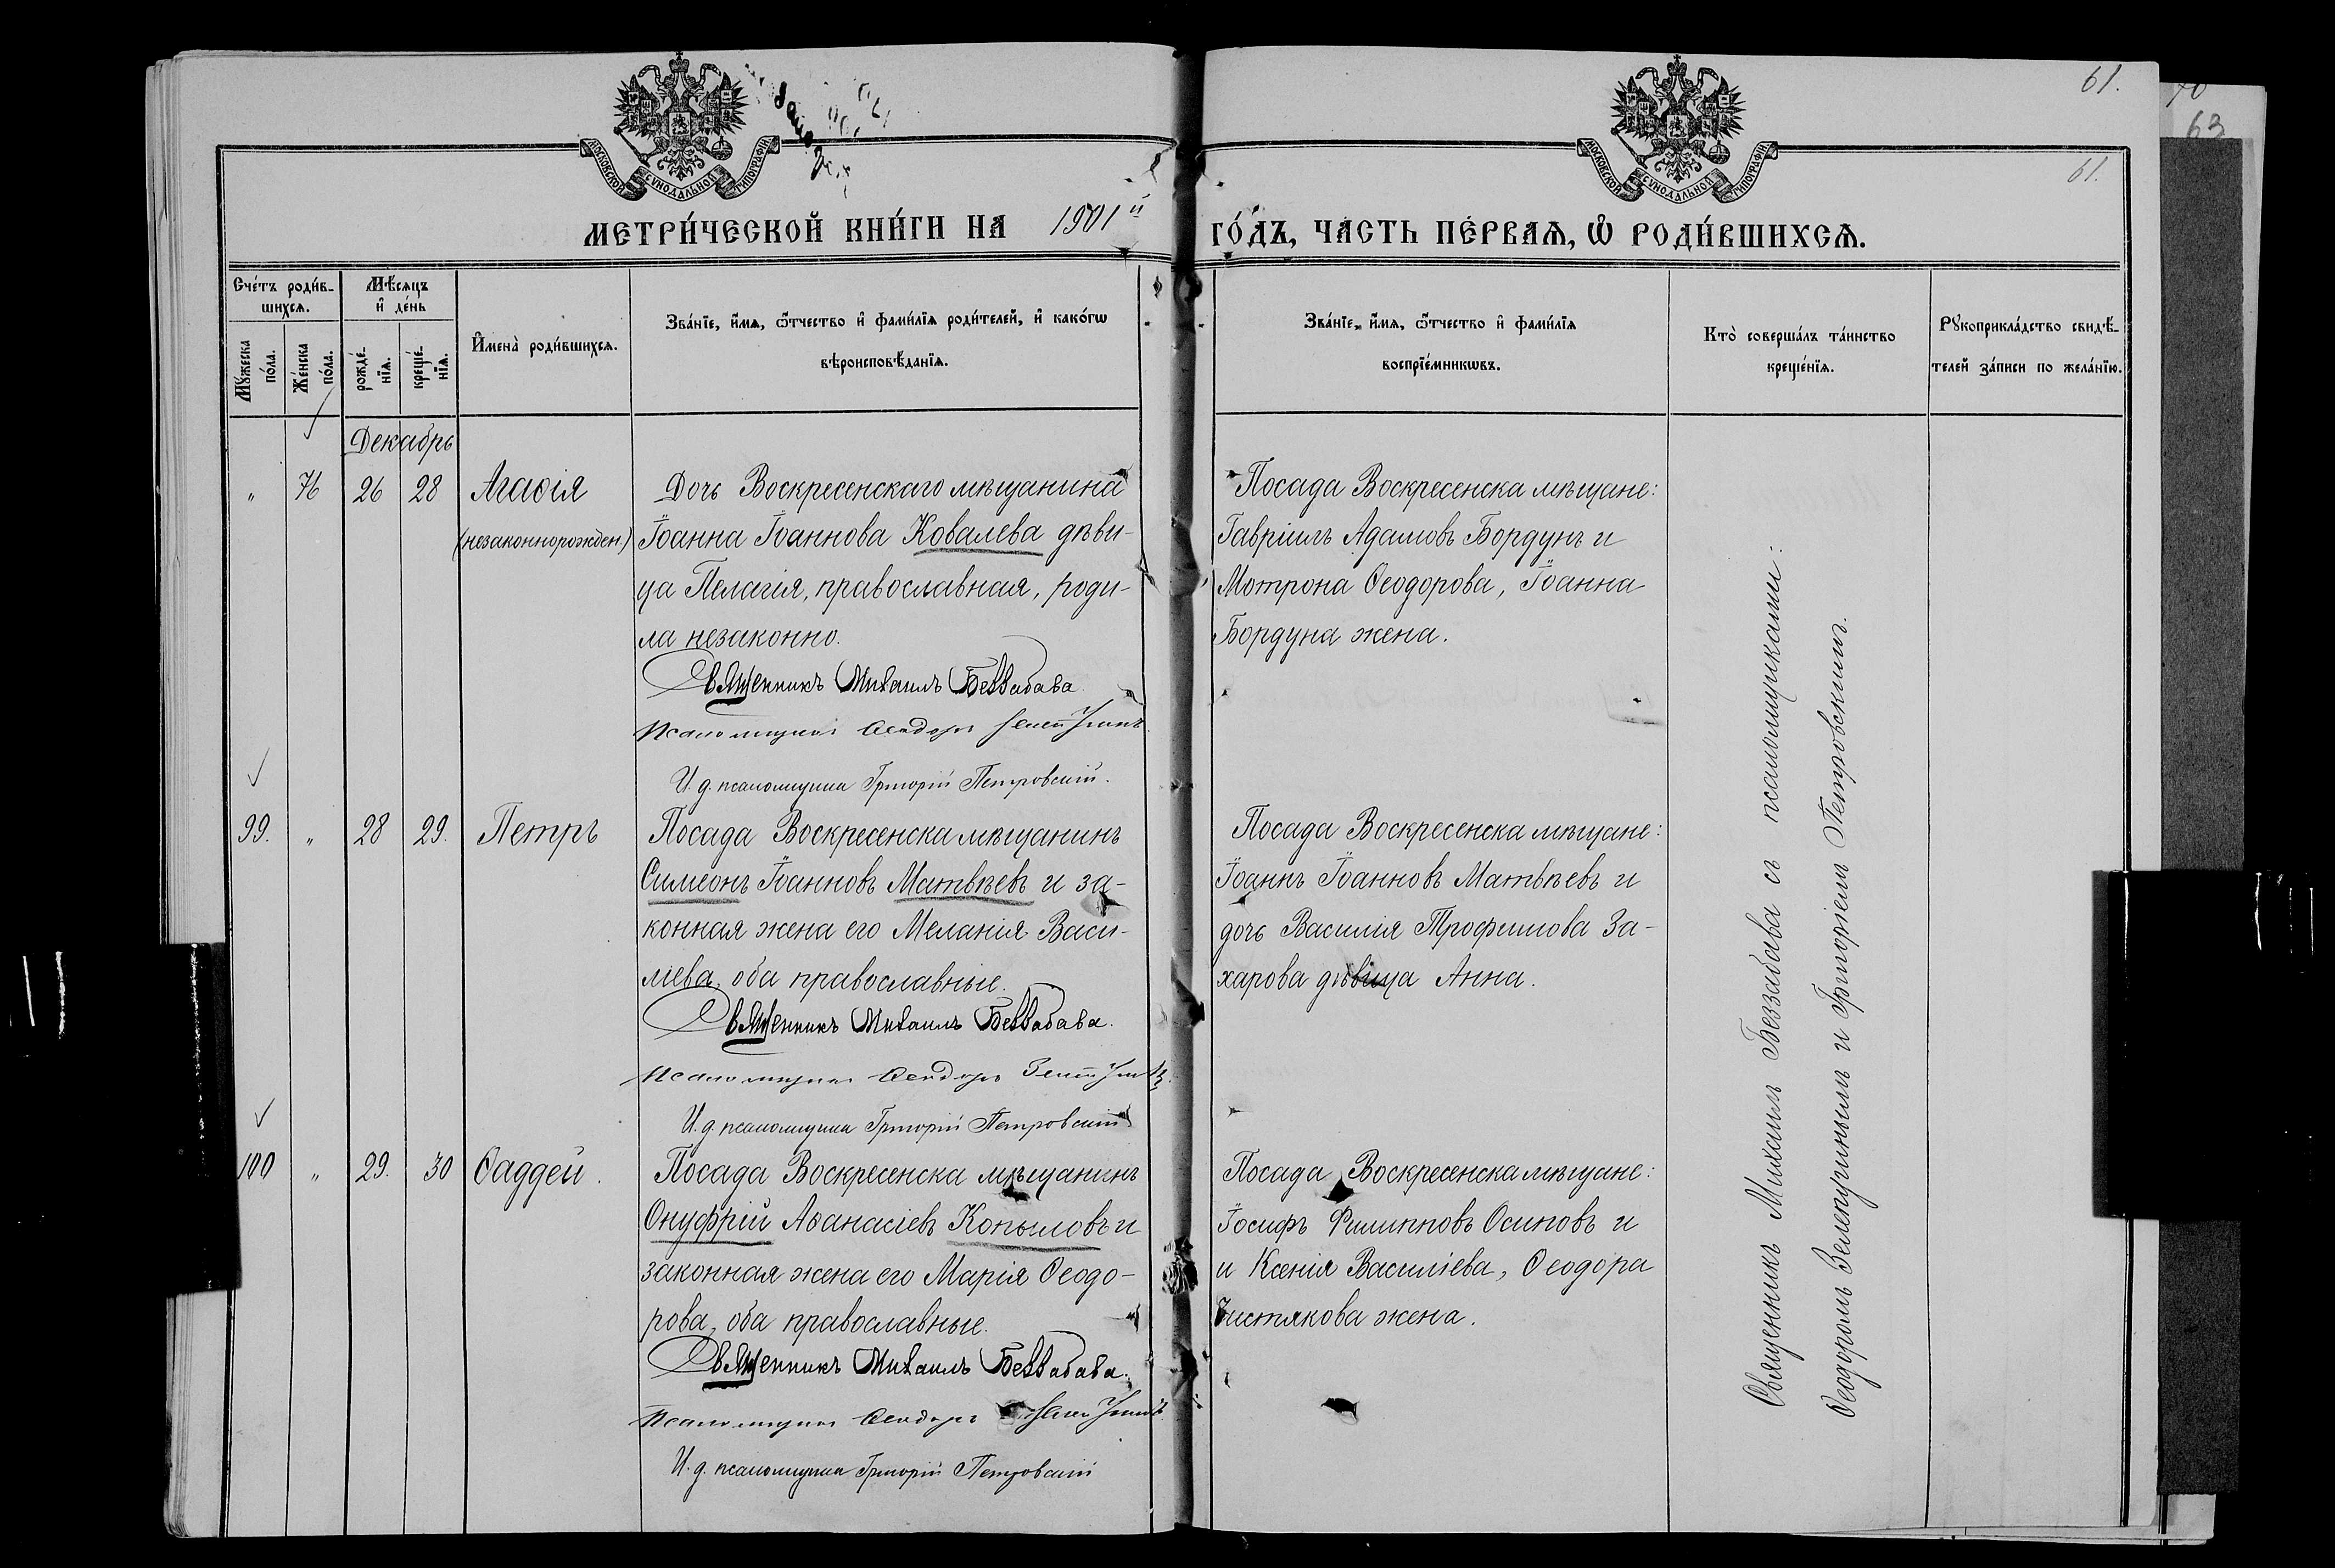 61.
70
63
61.
МОСКОВСКОЙ СѴНОДАЛЬНОЙ ТИПОГРАФІИ
МОСКОВСКОЙ СѴНОДАЛЬНОЙ ТИПОГРАФІИ
МЕТРИ́ЧЕСКОЙ КНИ́ГИ НА 1901й ГО́ДЪ, ЧАСТЬ ПЕ́РВАѦ, Ѽ РОДИ́ВШИХСѦ.
Сче́тъ роди́в-
шихсѧ.
Мѣ́сѧцъ
и҆ де́нь
Мꙋ́жеска
по́ла.
Же́нска
по́ла.
рожде́-
нїѧ.
креще́-
нїѧ.
И҆мена̀ роди́вшихсѧ.
Зва́нїе, и҆́мѧ, ѻ҆́тчество и҆ фами́лїѧ роди́телей, и҆ како́гѡ
вѣроисповѣ́данїѧ.
Зва́нїе, и҆́мѧ, ѻ҆́тчество и҆ фами́лїѧ
воспрїе́мникѡвъ.
Кто̀ соверша́лъ та́инство
креще́нїѧ.
Рꙋкоприкла́дство свидѣ́-
телей за́писи по жела́нїю.
Декабрь
„ 76 26 28 Агаѳія
(незаконнорожден.)
Дочь Воскресенскаго мѣщанина
Іоанна Іоаннова Ковалева дѣви-
ца Пелагія, православная, роди-
ла незаконно.
Священникъ Михаилъ Беззабава.
Псаломщикъ Ѳеодоръ
И. д. псаломщика Григорій Петровскій.
Посада Воскресенска мѣщане:
Гавріилъ Адамовъ Бордунъ и
Мотрона Ѳеодорова, Іоанна
Бордуна жена.
99. „ 28 29. Петръ
Посада Воскресенска мѣщанинъ
Симеонъ Іоанновъ Матвѣевъ и за-
конная жена его Меланія Васи-
ліева, оба православные.
Священникъ Михаилъ Беззабава.
Псаломщикъ Ѳеодоръ
И. д. псаломщика Григорій Петровскій
Посада Воскресенска мѣщане:
Іоаннъ Іоанновъ Матвѣевъ и
дочь Василія Трофимова За-
харова дѣвица Анна.
100 „ 29. 30 Ѳаддей.
Посада Воскресенска мѣщанинъ
Онуфрій Аѳанасіевъ Копыловъ и
законная жена его Марія Ѳеодо-
рова, оба православные.
Священникъ Михаилъ Беззабава.
Псаломщикъ Ѳеодоръ
И. д. псаломщика Григорій Петровскій
Посада Воскресенска мѣщане:
Іосифъ Филипповъ Осиповъ и
и Ксенія Василіева, Ѳеодора
Чистякова жена.
Священникъ Михаилъ Беззабава съ псаломщиками:
Ѳеодоромъ Велентѣинымъ и Григоріемъ Петровскимъ.